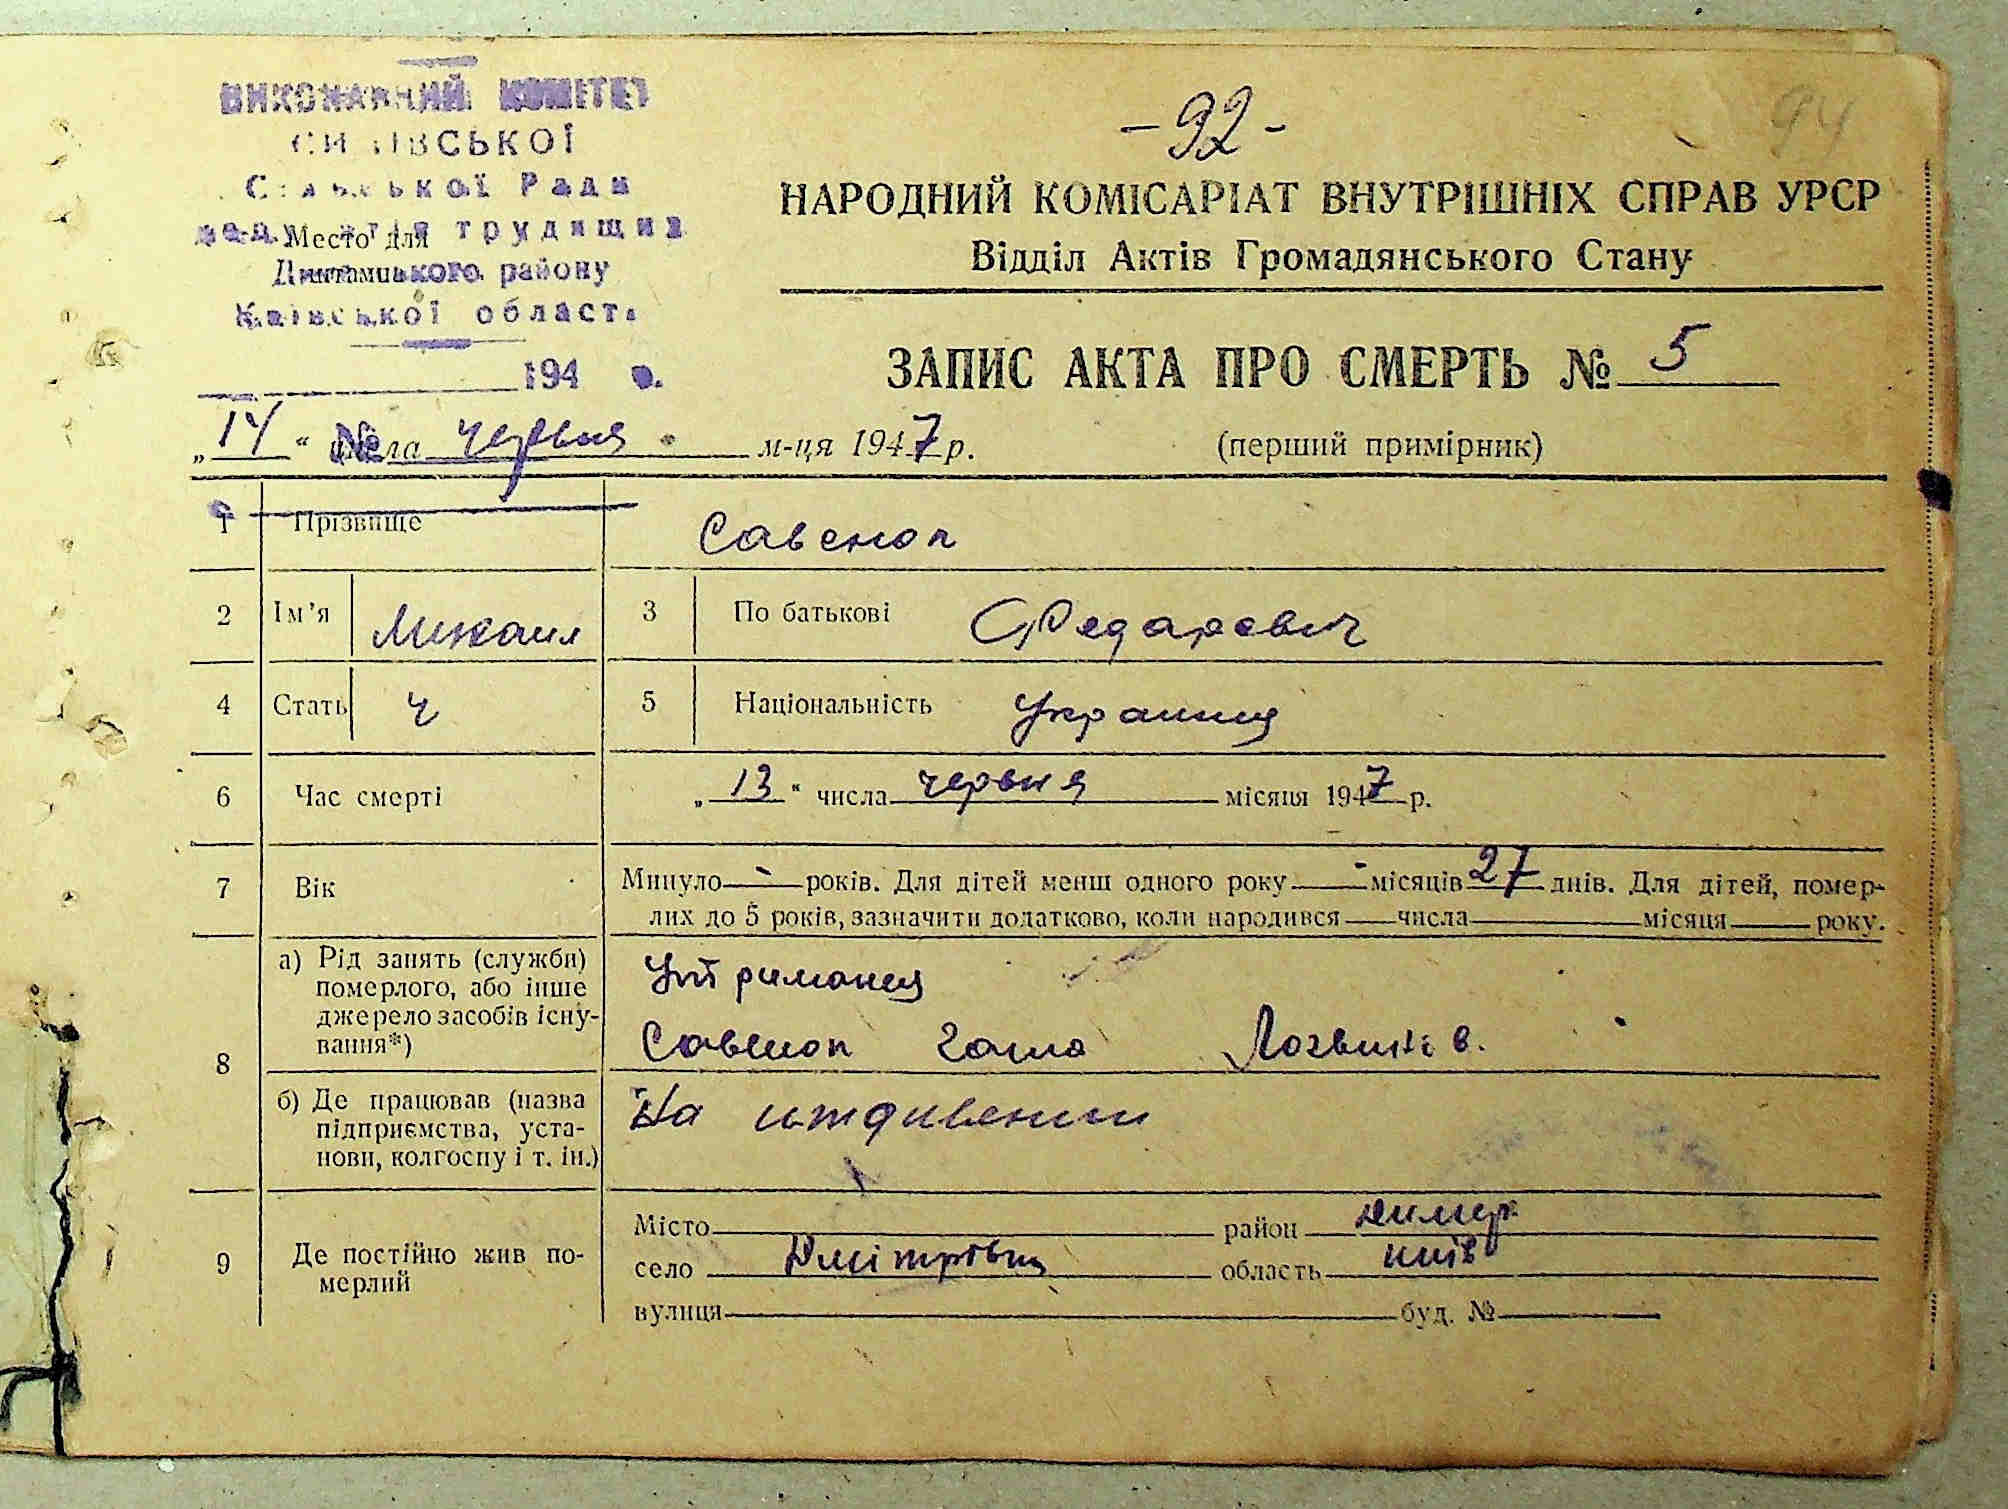 ВИКОНАВЧИЙ КОМІТЕТ
Сільської Ради
трудящих
Место для
району
Київської област
194 р.
- 92 -
94
НАРОДНИЙ КОМІСАРІАТ ВНУТРІШНІХ СПРАВ УРСР
Відділ Актів Громадянського Стану
ЗАПИС АКТА ПРО СМЕРТЬ № 5
„14“ числа червня м-ця 1947 р.
(перший примірник)
1 Прізвище Савенок
2 Ім’я Михаил 3 По батькові Федаревич
4 Стать ч 5 Національність Украинец
6 Час смерті „13“ числа червня місяця 1947 р.
7 Вік Минуло - років. Для дітей менш одного року - місяців 27 днів. Для дітей, помер-
лих до 5 років, зазначити додатково, коли народився числа місяця року.
8 а) Рід занять (служби)
померлого, або інше
джерело засобів існу-
вання*)
Утриманец
Савенок Логвинів.
б) Де працював (назва
підприємства, уста-
нови, колгоспу і т. ін.)
На иждивении
9 Де постійно жив по-
мерлий
Місто район Димер
село Дмітрівка область Київ
вулиця буд. №